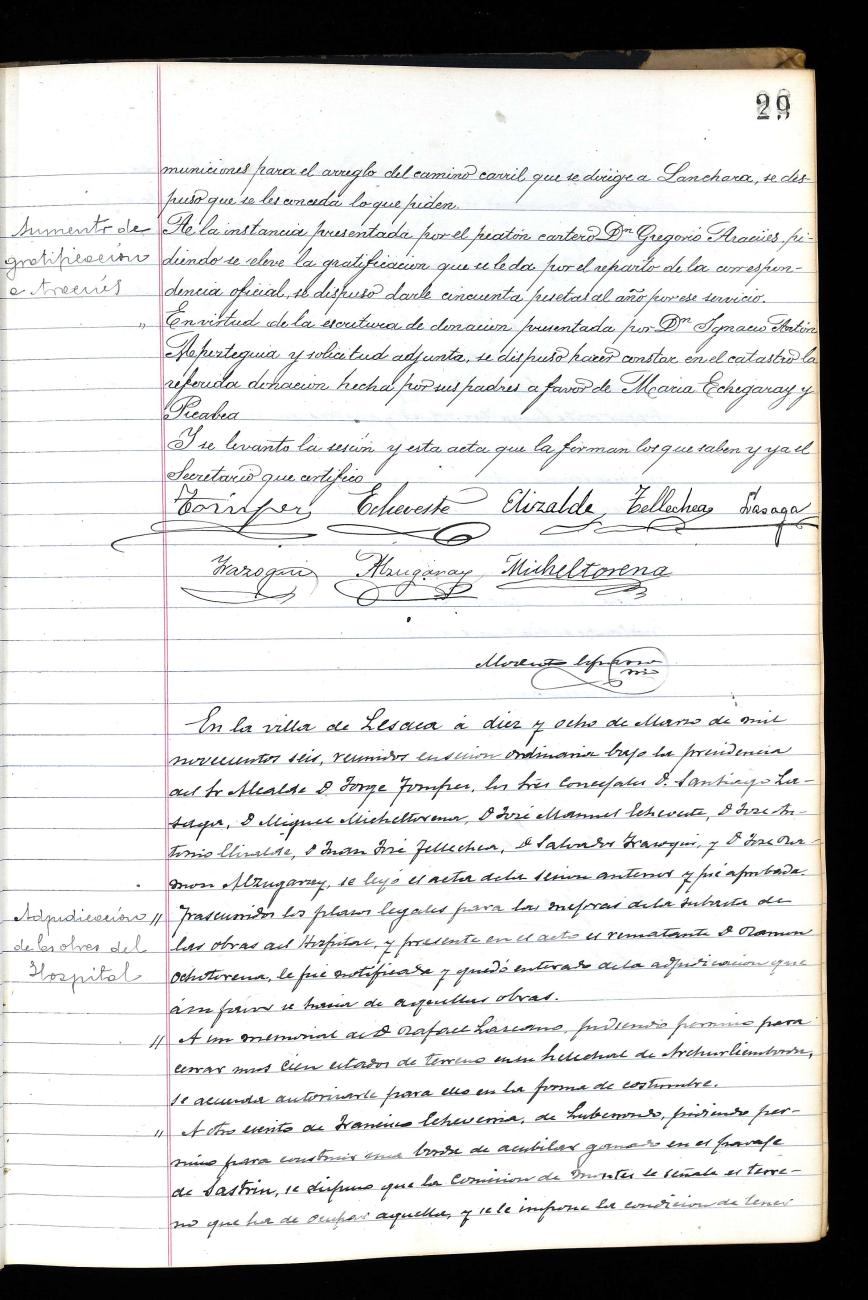 29
municiones para el arreglo del camino carril que se dirige a Lanchara, se dis-
puso que se les conceda lo que piden.
Aumento de
gratificación
a Aracués
A la instancia presentada por el peatón cartero Dn Gregorio Aracües, pi-
diendo se eleve la gratificación que se le da por el reparto de la correspon-
dencia oficial, se dispuso darle cincuenta pesetas al año por ese servicio.
" En virtud de la escritura de donacion presentada por Dn Ignacio Antón
Aperteguia y solicitud adjunta, se dispuso hacer constar en el catastro la
referida donacion hecha por sus padres a favor de Maria Echegaray y
Picabea
Y se levanto la sesión y esta acta que la firman los que saben y yo el
Secretario que certifico
Tompes Echeveste Elizalde Tellechea Lasaga
Irazoqui Alzugaray Micheltorena
En la villa de Lesaca á diez y ocho de Marzo de mil
novecientos seis, reunidos en sesion ordinaria bajo la presidencia
del Sr Alcalde D. Jorge Tompes, los sres Concejales D. Santiago La-
saga, D Miguel Micheltorena, D José Manuel Echeveste, D José An-
tonio Elizalde, D Juan José Tellechea, D Salvador Irazoqui, y D José Ra-
mon Alzugaray, se leyó el acta de la sesion anterior y fué aprobada.
Adjudicación
de las obras del
Hospital
" Trascurridos los plazos legales para las mejoras de la subasta de
las obras del Hospital, y presente en el acto el rematante D Ramon
Ochotorena, le fué notificada y quedó enterado de la adjudicacion que
á su favor se hacia de aquellas obras.
" A un memorial de D Rafael Lascano, pidiendo permiso para
cerrar mas cien estados de terreno en su helechal de
se acuerda autorizarle para ello en la forma de costumbre.
" A otro escrito de Francisco Echeverria, de pidiendo per-
miso para construir una borda de acubilar ganado en el paraje
de Sastrin, se dispuso que la Comision de Montes le señale el terre-
no que ha de ocupar aquella, y se le impone la condicion de tener